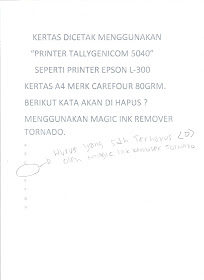 KERTAS DICETAK MENGGUNAKAN
"PRINTER TALLYGENICOM 5040"
SEPERTI PRINTER EPSON L-300
KERTAS A4 MERK CAREFOUR 80GRM.
BERIKUT KATA AKAN DI HAPUS ?
MENGGUNAKAN MAGIC INK REMOVER
TORNADO.
Huruf yang Sdh Terhapus (O)
oleh magic ink remover Tornado